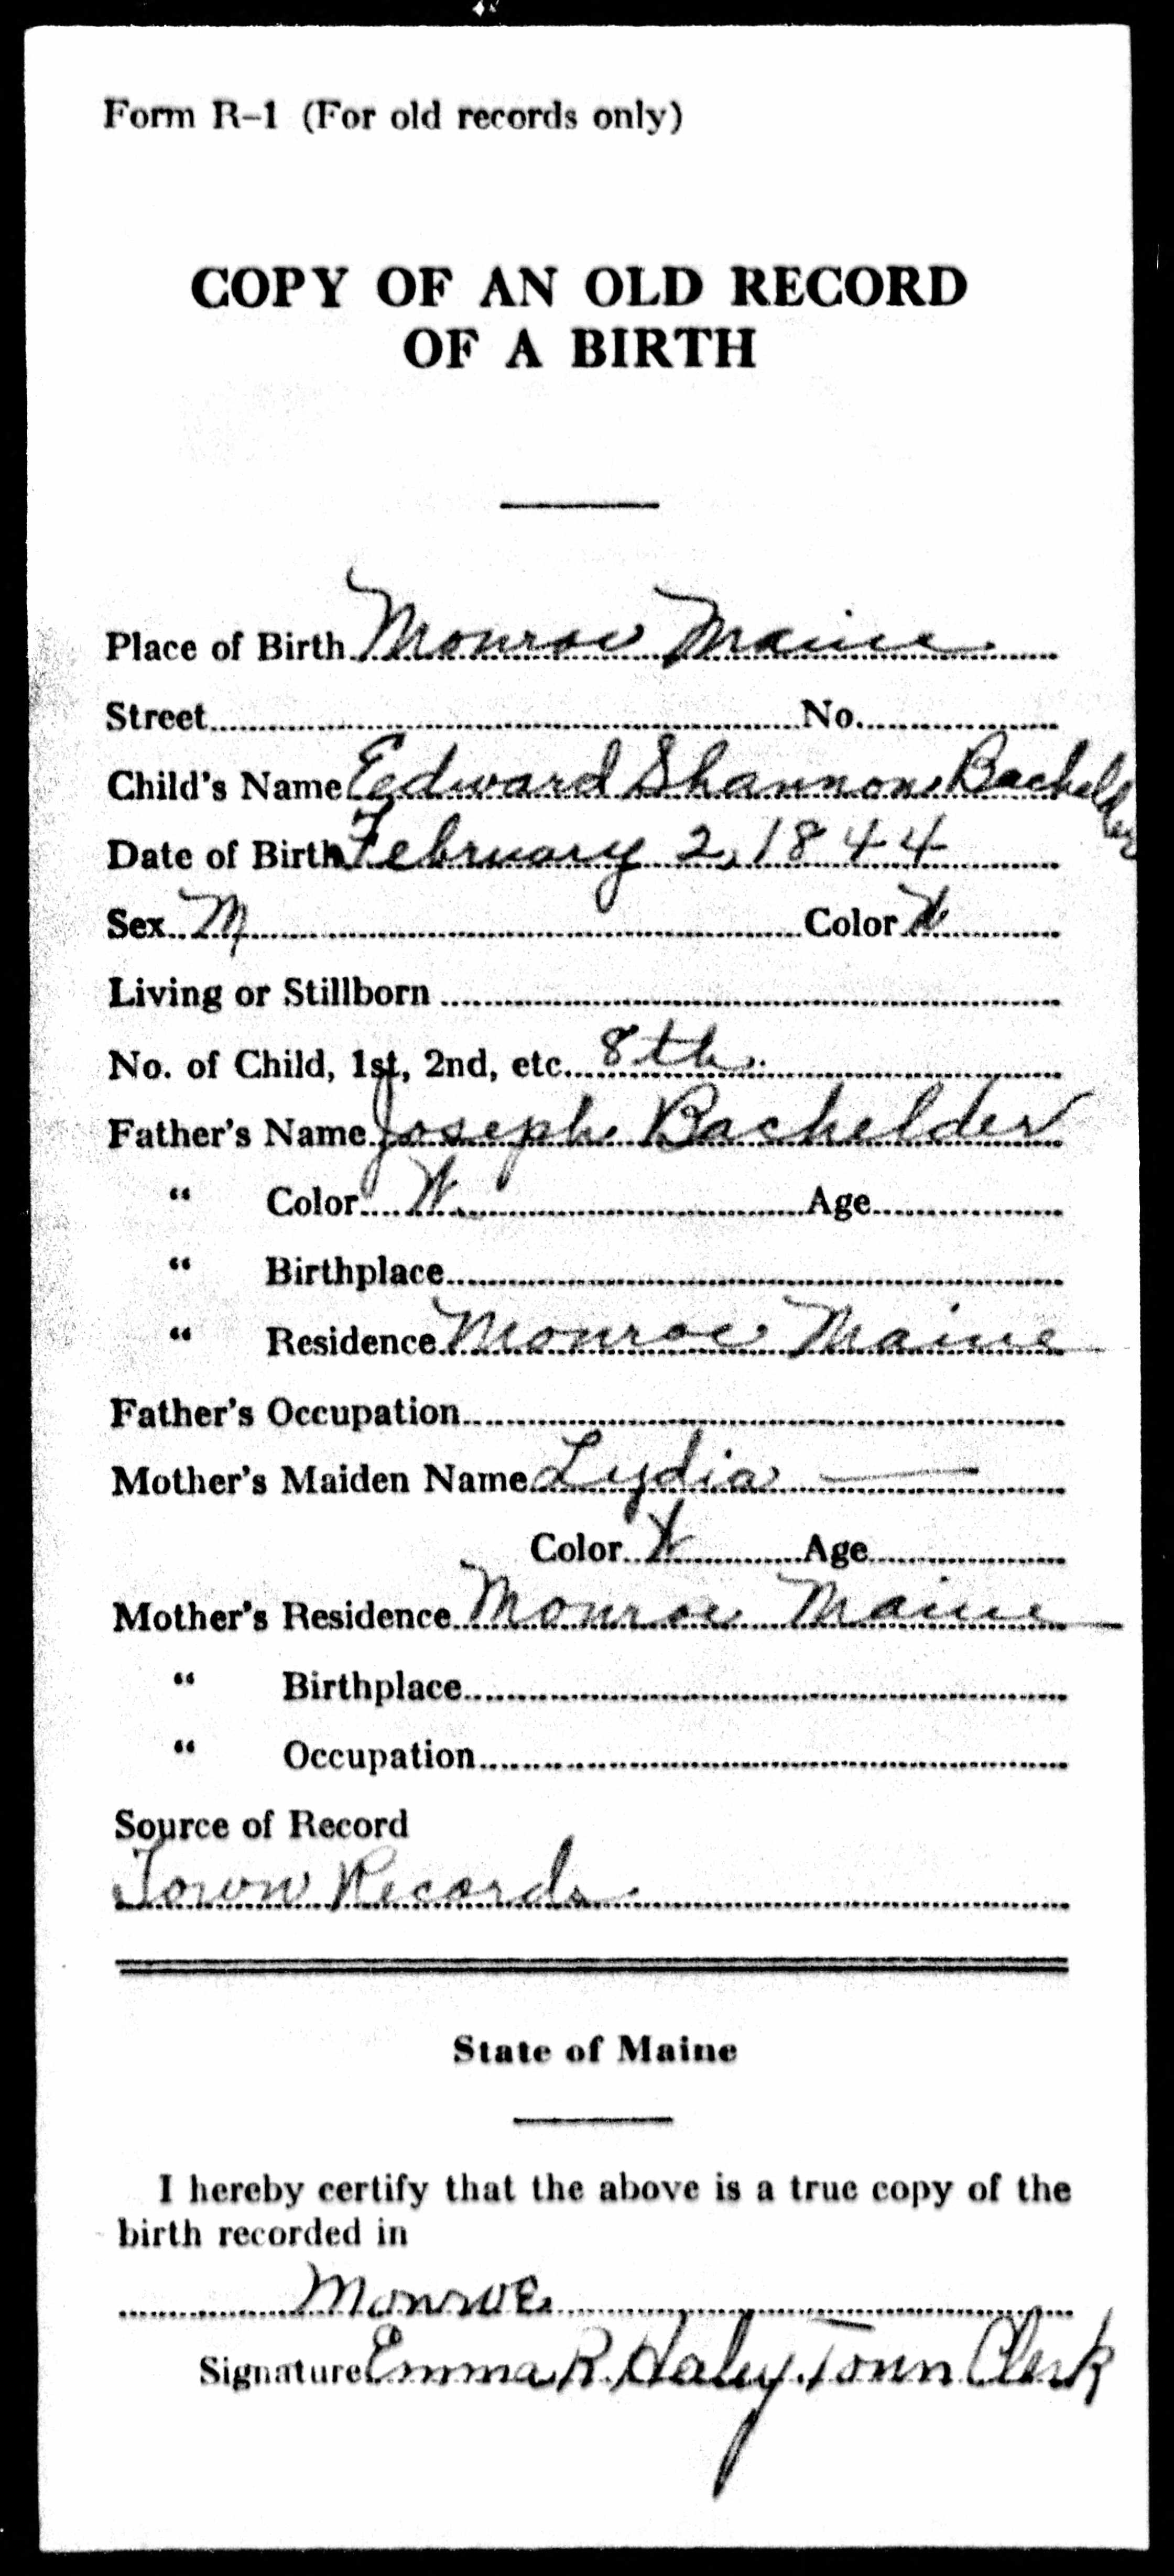 Form R-1 (For old records only)
COPY OF AN OLD RECORD
OF A BIRTH
Place of Birth Monroe Maine
Street No.
Child's Name Edward Shannon Bachelder
Date of Birth February 2, 1844
Sex M Color W
Living or Stillborn
No. of Child, 1st, 2nd, etc. 8th
Father's Name Joseph Bachelder
" Color W Age
" Birthplace
" Residence Monroe Maine
Father's Occupation
Mother's Maiden Name Lydia —
Color W Age
Mother's Residence Monroe Maine
" Birthplace
" Occupation
Source of Record
Town Records
State of Maine
I hereby certify that the above is a true copy of the
birth recorded in
Monroe
Signature Emma R. Haley Town Clerk